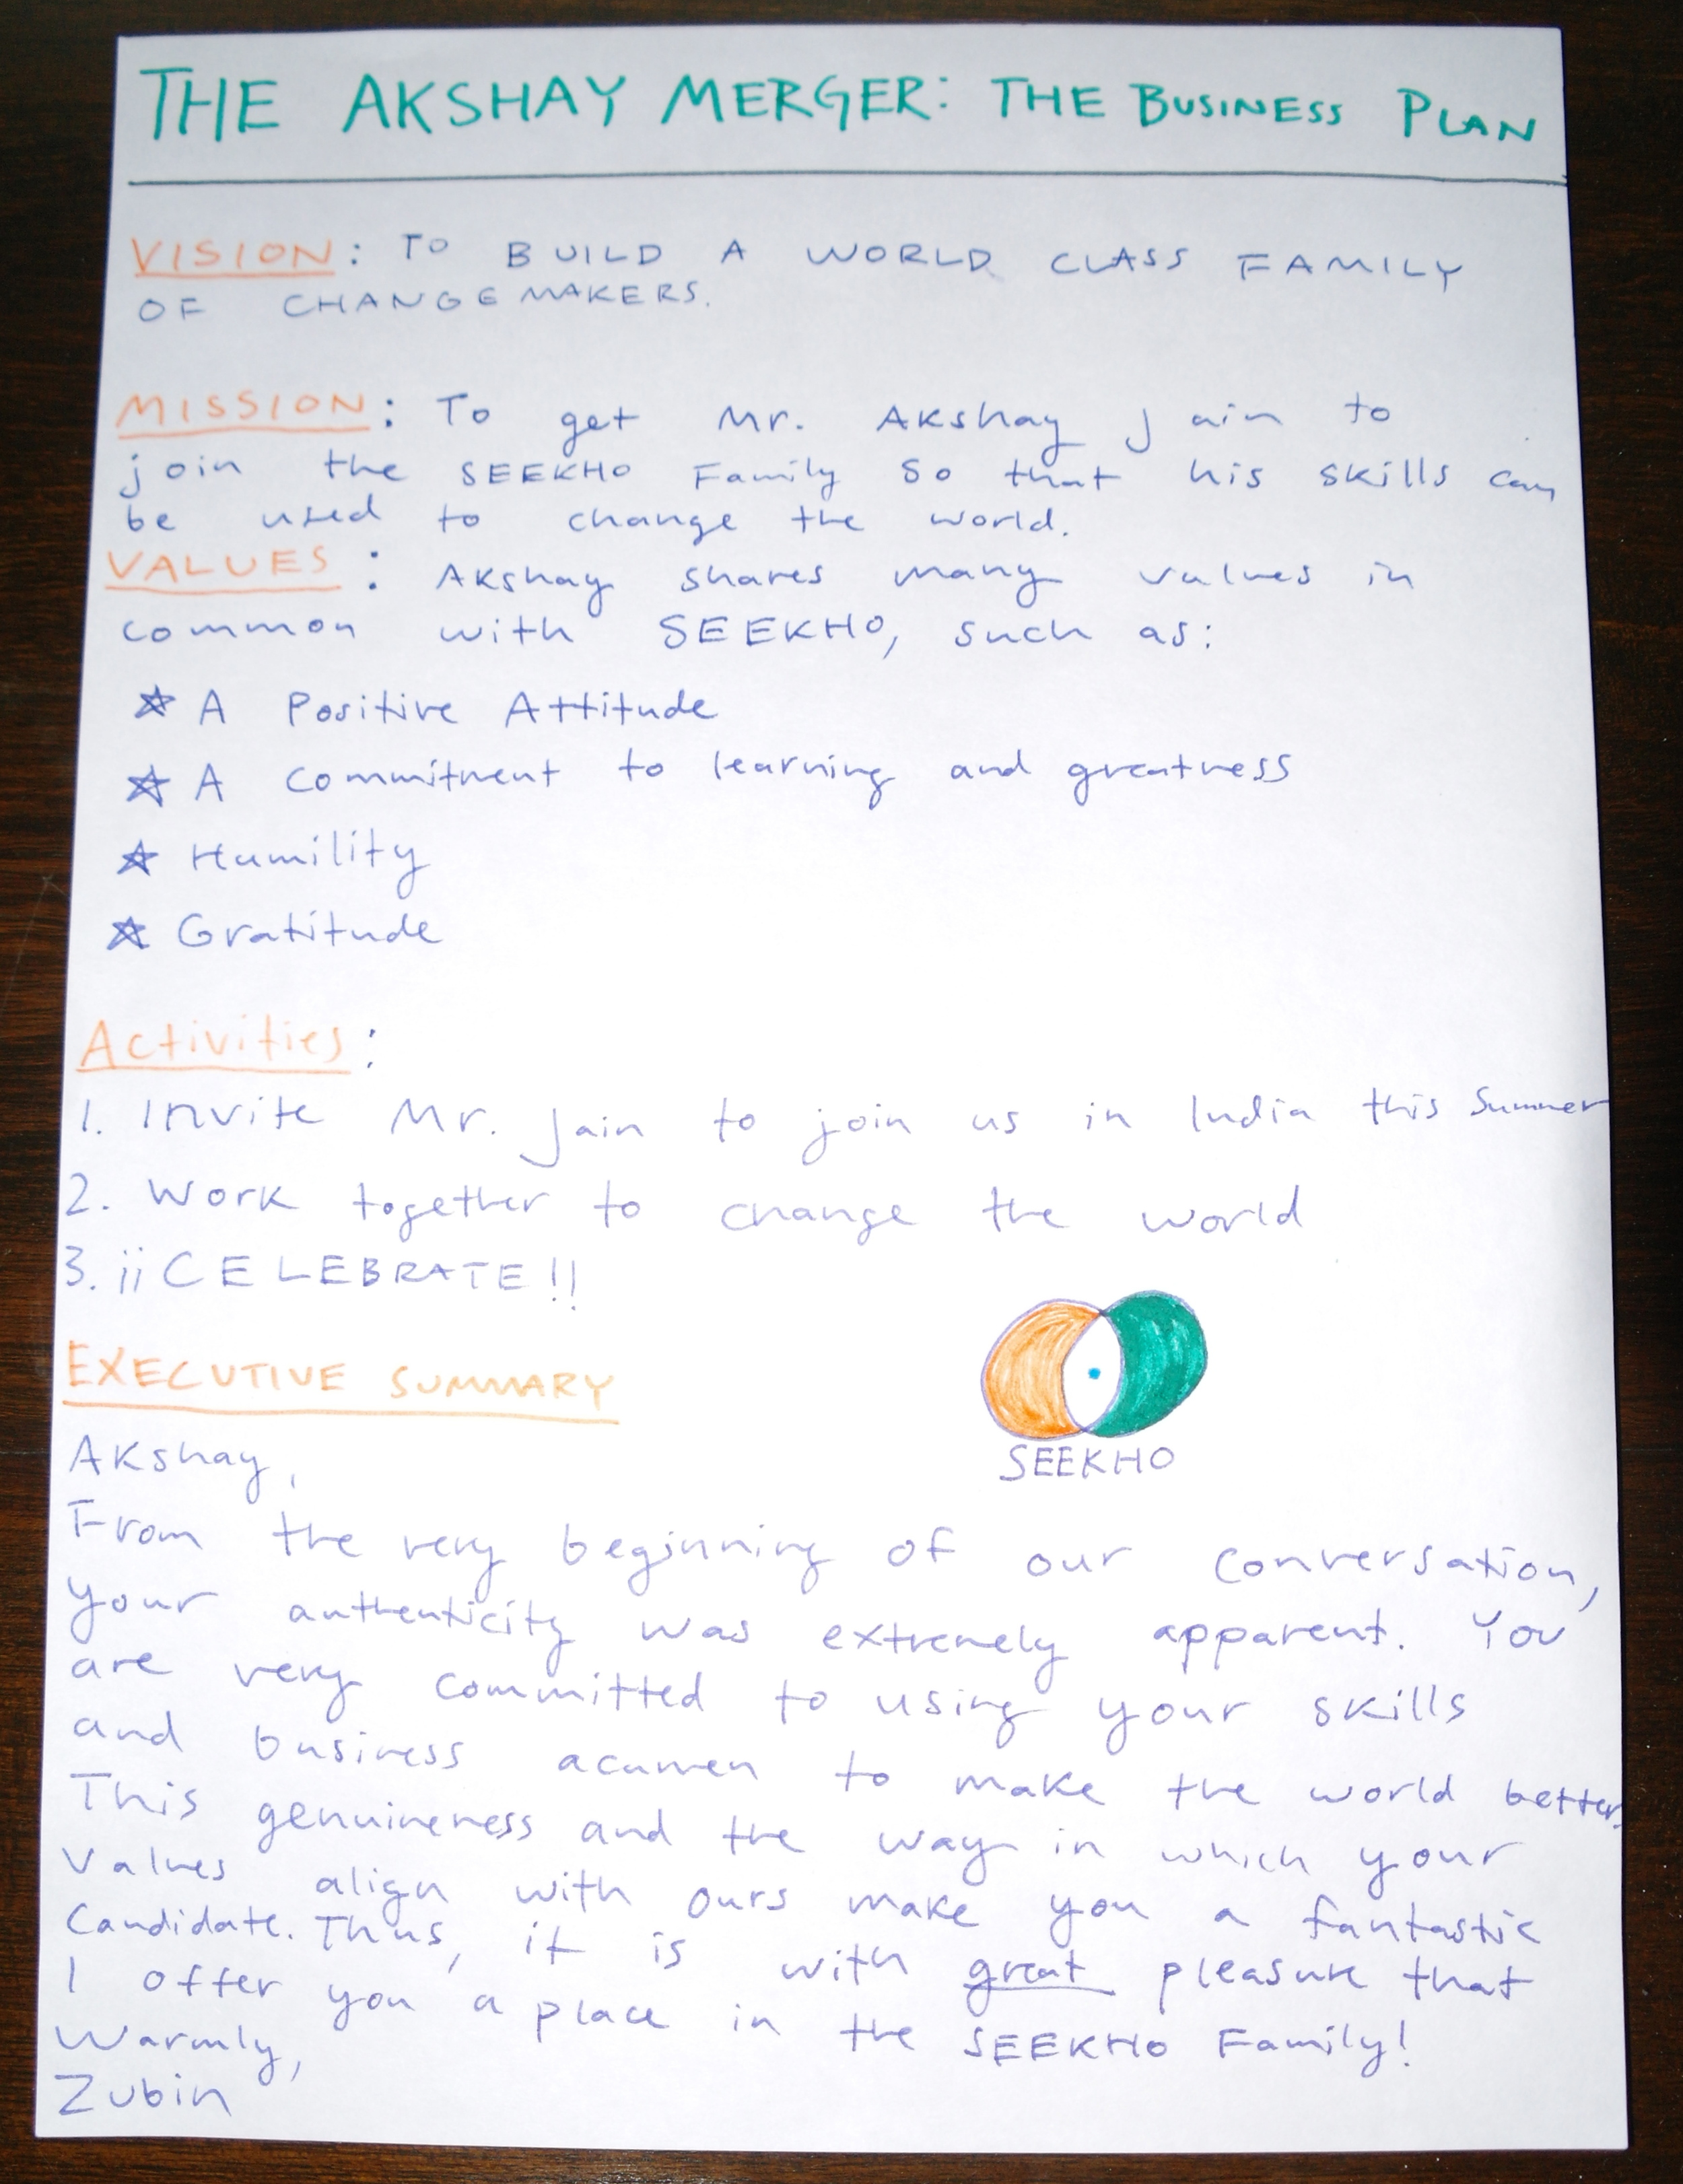 THE AKSHAY MERGER: THE BUSINESS PLAN
VISION: TO BUILD A WORLD CLASS FAMILY
OF CHANGEMAKERS.
MISSION: To get Mr. Akshay Jain to
join the SEEKHO Family so that his skills can
be used to change the world.
VALUES: Akshay shares many values in
common with SEEKHO, such as:
☆ A Positive Attitude
☆ A commitment to learning and greatness
☆ Humility
☆ Gratitude
Activities:
1. Invite Mr. Jain to join us in India this Summer
2. Work together to change the world
3. ¡¡CELEBRATE!!
EXECUTIVE SUMMARY
SEEKHO
Akshay,
From the very beginning of our conversation,
your authenticity was extremely apparent. You
are very committed to using your skills
and business acumen to make the world better.
This genuineness and the way in which your
Values align with ours make you a fantastic
Candidate. Thus, it is with great pleasure that
I offer you a place in the SEEKHO Family!
Warmly,
Zubin